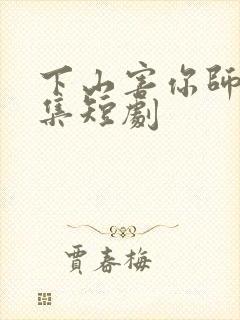 下山害你師
集短劇
賈春梅